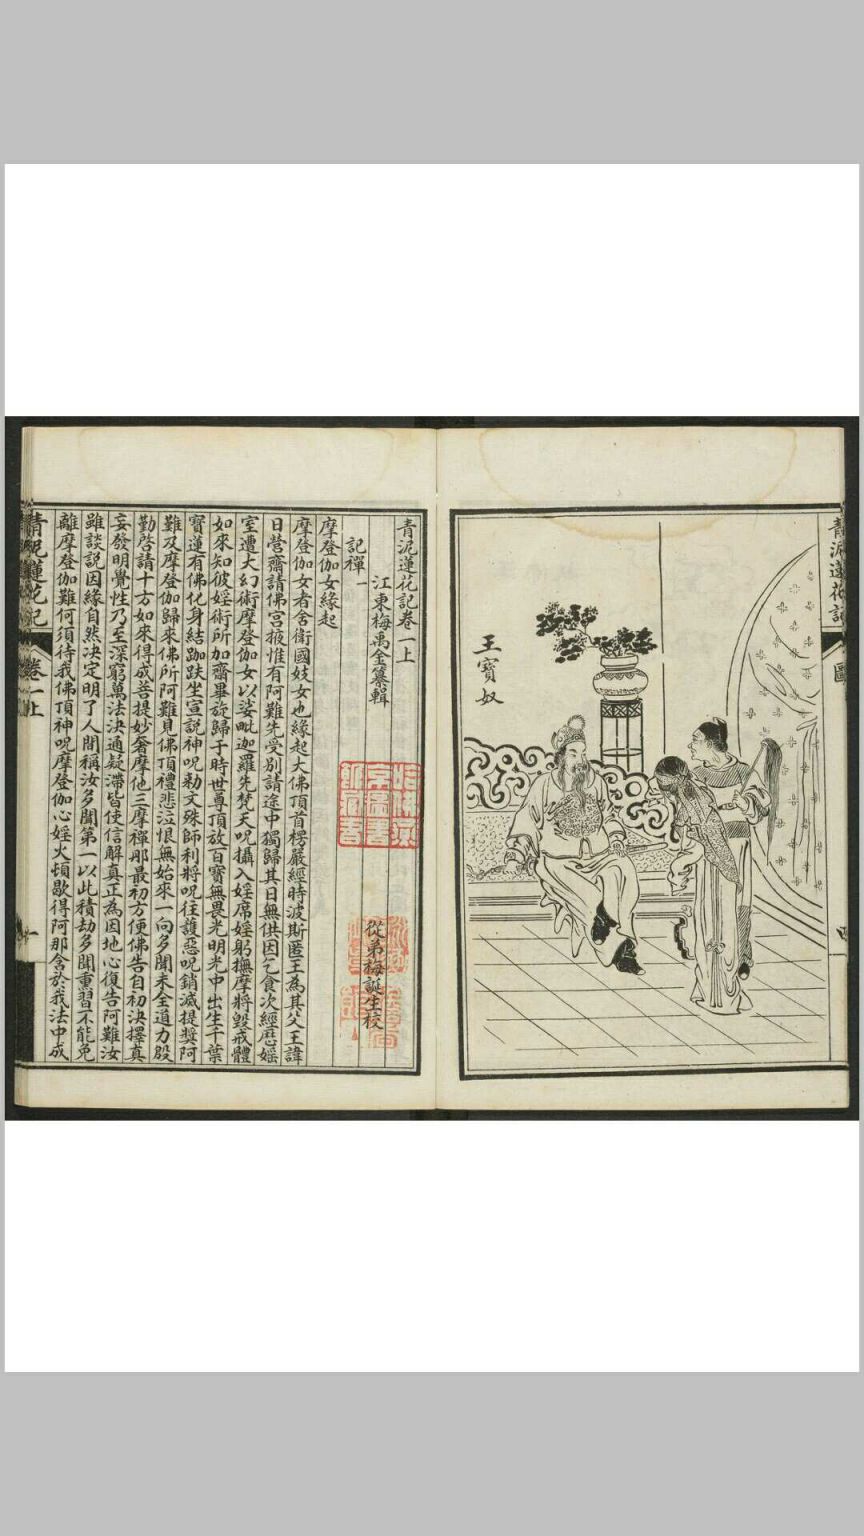 青泥蓮花記
圖
王寶奴
青泥蓮花記卷一上
江東梅禹金纂輯
從弟梅誕生校
記禪一
摩登伽女緣起
摩登伽女者舍衛國妓女也緣起大佛頂首楞嚴經時波斯匿王為其父王諱
日營齋請佛宮掖惟有阿難先受別請途中獨歸其日無供因乞食次經歷婬
室遭大幻術摩登伽女以娑毗迦羅先梵天呪攝入婬席婬躬撫摩將毀戒體
如來知彼婬術所加齋畢旋歸于時世尊頂放百寶無畏光明光中出生千葉
寶蓮有佛化身結跏趺坐宣說神呪勅文殊師利將呪往護惡呪銷滅提獎阿
難及摩登伽歸來佛所阿難見佛頂禮悲泣恨無始來一向多聞未全道力殷
勤啓請十方如來得成菩提妙奢摩他三摩禪那最初方便佛告自初決擇真
妄發明覺性乃至深窮萬法決通疑滯皆使信解真正為因地心復告阿難汝
雖談說因緣自然決定明了人間稱汝多聞第一以此積劫多聞熏習不能免
離摩登伽難何須待我佛頂神呪摩登伽心婬火頓歇得阿那含於我法中成
青泥蓮花記
卷一上
一